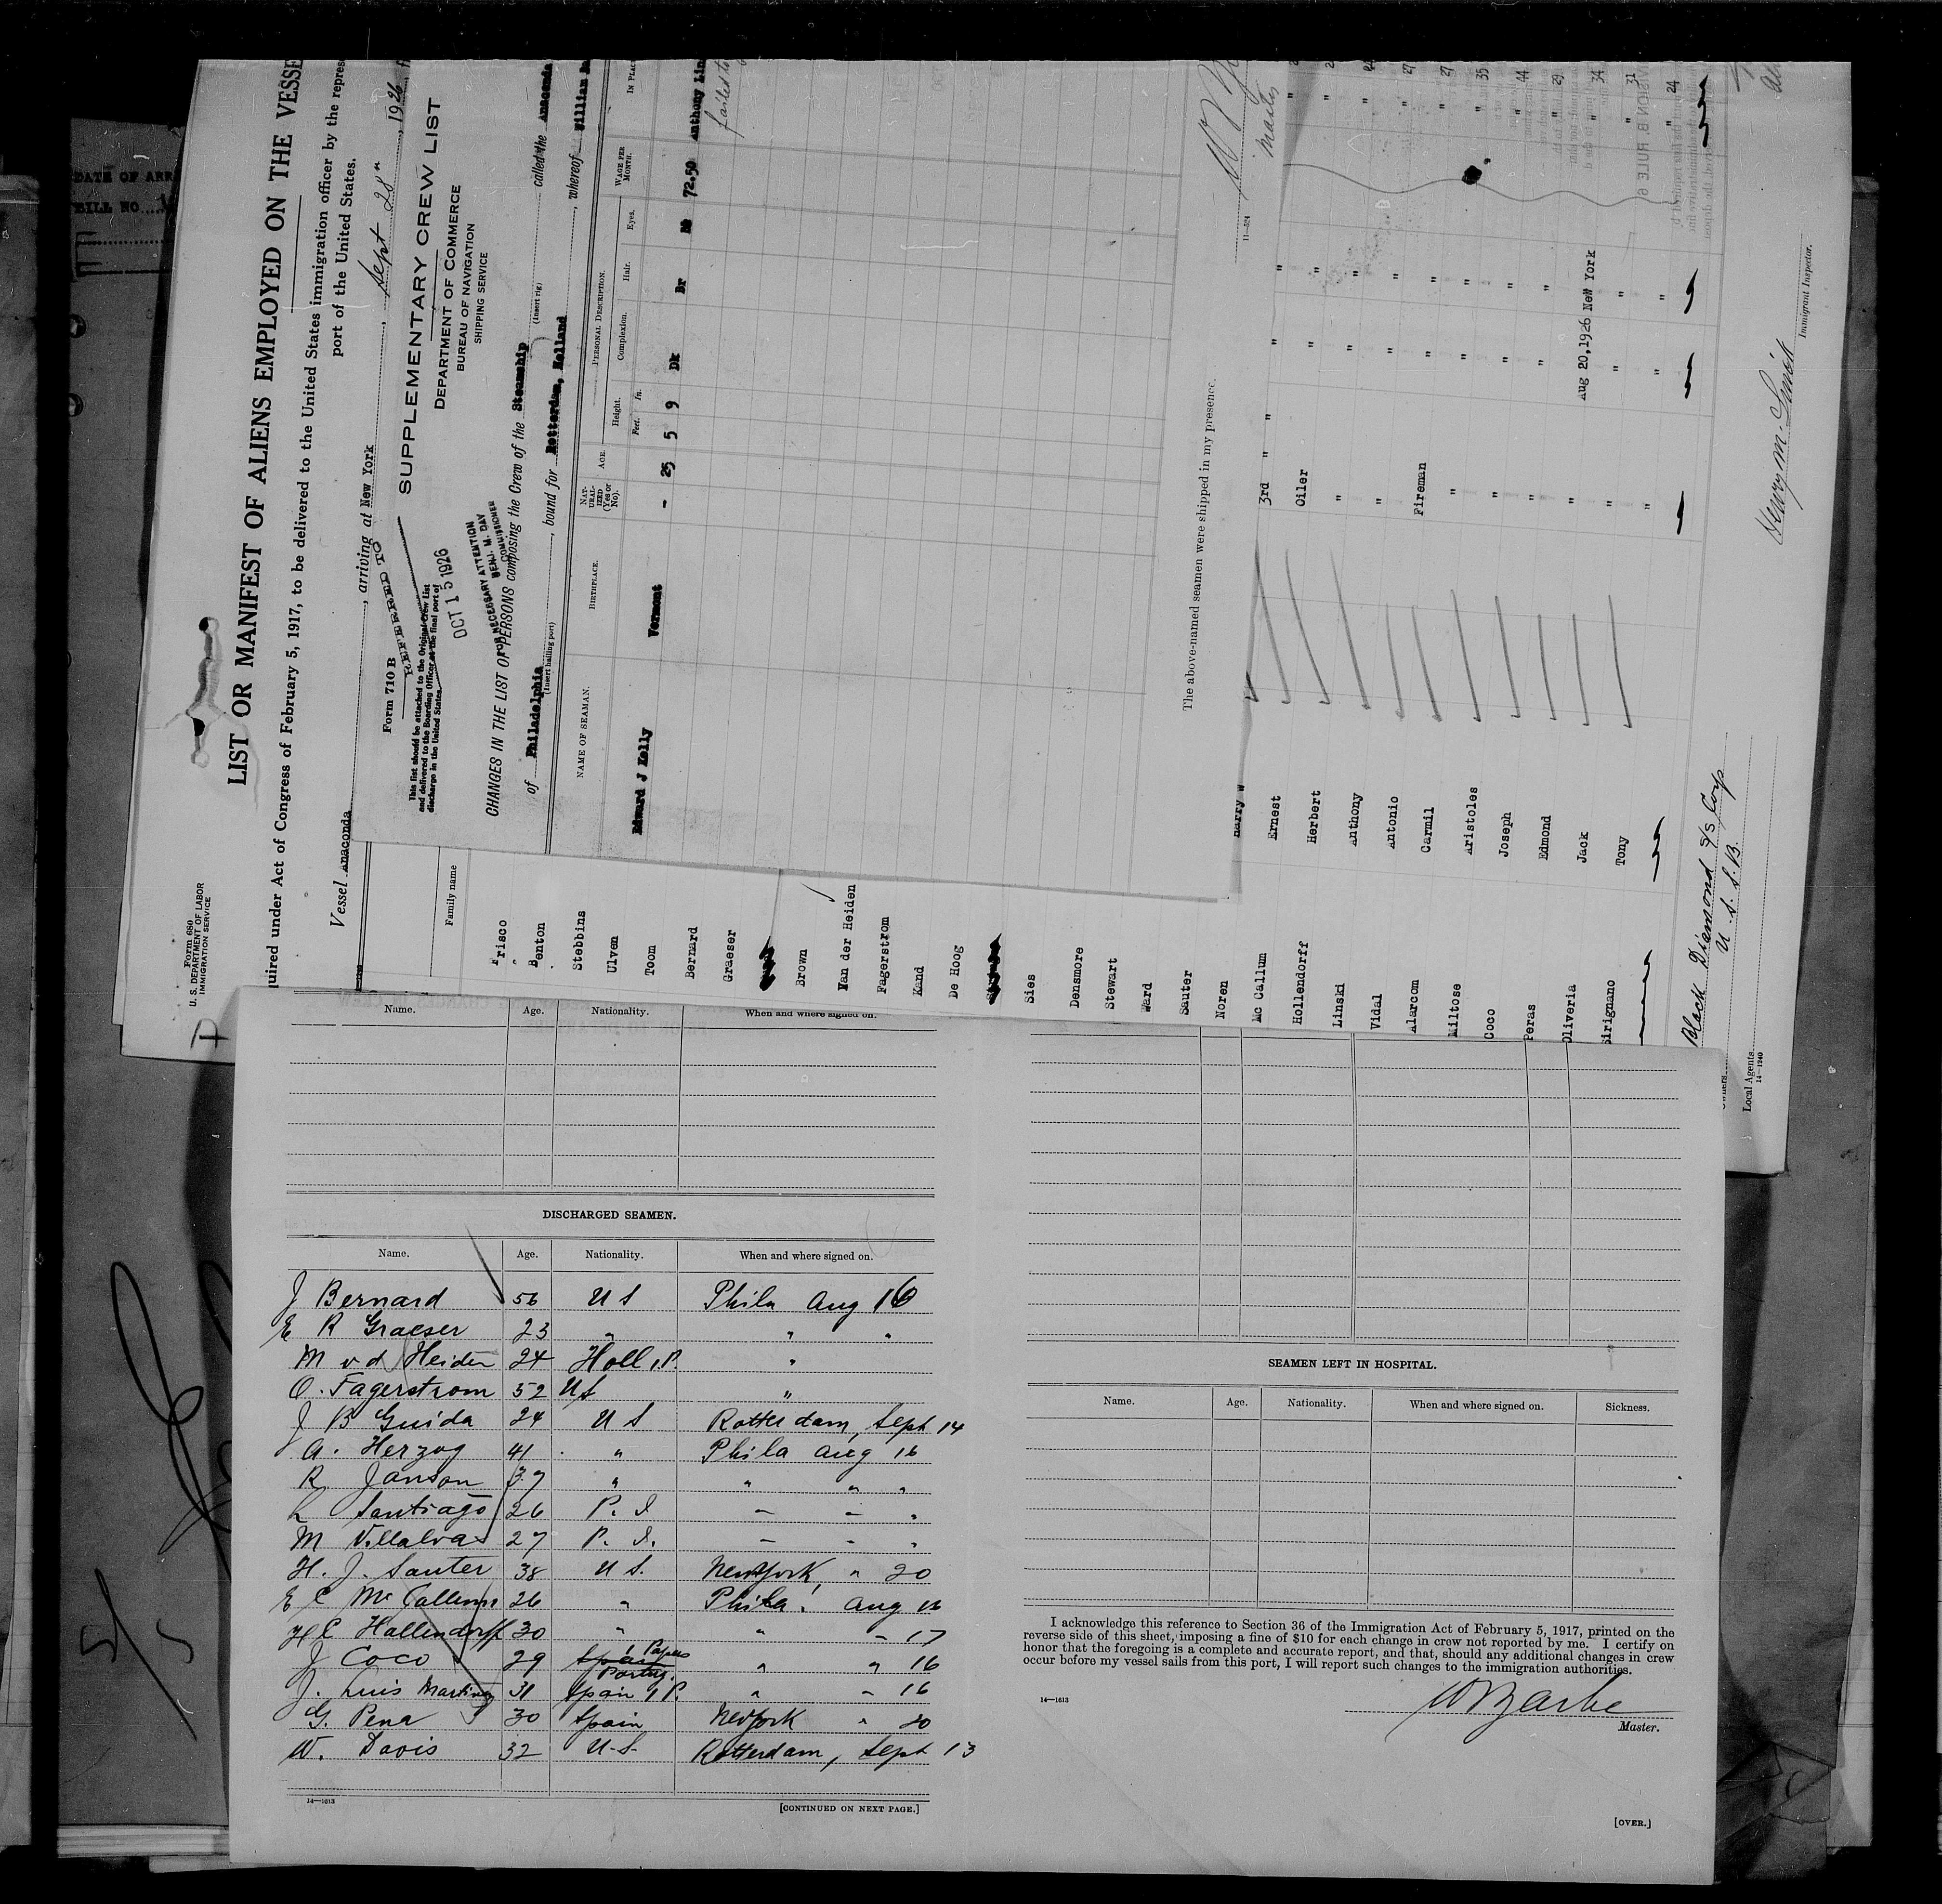 DATE OF ARR
BILL NO
Form 680
U. S. DEPARTMENT OF LABOR
IMMIGRATION SERVICE
LIST OR MANIFEST OF ALIENS EMPLOYED ON THE VESSE
quired under Act of Congress of February 5, 1917, to be delivered to the United States immigration officer by the repres
port of the United States.
Vessel Anaconda, arriving at New York, Sept 28", 1926, f
Form 710 B
SUPPLEMENTARY CREW LIST
REFERRED TO
DEPARTMENT OF COMMERCE
BUREAU OF NAVIGATION
SHIPPING SERVICE
This list should be attached to the Original Crew List
and delivered to the Boarding Officer at the final port of
discharge in the United States.
OCT 15 1926
FOR NECESSARY ATTENTION
BENJ. M. DAY
COMMISSIONER
CHANGES IN THE LIST OF PERSONS composing the Crew of the Steamship called the Anaconda
(Insert rig)
of Philadelphia, bound for Rotterdam, Holland, whereof William
(Insert hailing port)
NAME OF SEAMAN. BIRTHPLACE. NAT-URAL-IZED (Yes or No). AGE. PERSONAL DESCRIPTION. WAGE PER MONTH. IN PLAC
Height. Feet. In. Complexion. Hair. Eyes.
Edward J Kelly Vermont - 25 5 9 Dk Br 72.50 Anthony Lin
failed to
The above-named seamen were shipped in my presence.
11—524
Master
Family name
Frisco
Benton
Stebbins
Ulven
Toom
Bernard
Graeser
Brown
Van der Heiden
Fagerstrom
Kand
De Hoog
Sies
Densmore
Stewart
Ward
Sauter
Noren Harry W
Mc Callum Ernest 3rd " "
Hollendorff Herbert Oiler " "
Linski Anthony " " "
Vidal Antonio " " " 27
Alarcom Carmil Fireman " " " 27
Miltose Aristoles " " " " 35
Coco Joseph " " " " 44
Peras Edmond " " " " 29
Oliveria Jack " Aug 20,1926 New York " 34
Sirignano Tony " " " " 31
" " " " 24
IVISION B. RULE 6
Owners Black Diamond S/s Corp
Local Agents U. S. S. B.
14—1240
Henry M. Smith
Immigrant Inspector.
Name. Age. Nationality. When and where signed on.
DISCHARGED SEAMEN.
Name. Age. Nationality. When and where signed on.
J Bernard 56 U S Phila Aug 16
E R Graeser 23 " " "
M v d Heiden 24 Holl, P. "
O. Fagerstrom 52 U S "
J B Guida 24 U S Rotterdam, Sept 14
A. Herzog 41 " Phila Aug 16
R Janson 37 " " " "
L Santiago 26 P. I - - "
M Villalvas 27 P. I. - - "
H. J. Sauter 38 U S. New York, " 20
E C Mc Callum 26 " Phila. Aug 16
H C Hallendorff 30 " " " 17
J Coco 29 Spain Portug. Papers " " 16
J. Luis Martinez 31 Spain 1 P. " " 16
G. Pena 30 Spain New York " 20
W. Davis 32 U.S. Rotterdam, Sept 13
14—1613
[CONTINUED ON NEXT PAGE.]
SEAMEN LEFT IN HOSPITAL.
Name. Age. Nationality. When and where signed on. Sickness.
I acknowledge this reference to Section 36 of the Immigration Act of February 5, 1917, printed on the
reverse side of this sheet, imposing a fine of $10 for each change in crew not reported by me. I certify on
honor that the foregoing is a complete and accurate report, and that, should any additional changes in crew
occur before my vessel sails from this port, I will report such changes to the immigration authorities.
14—1613
Master.
[OVER.]